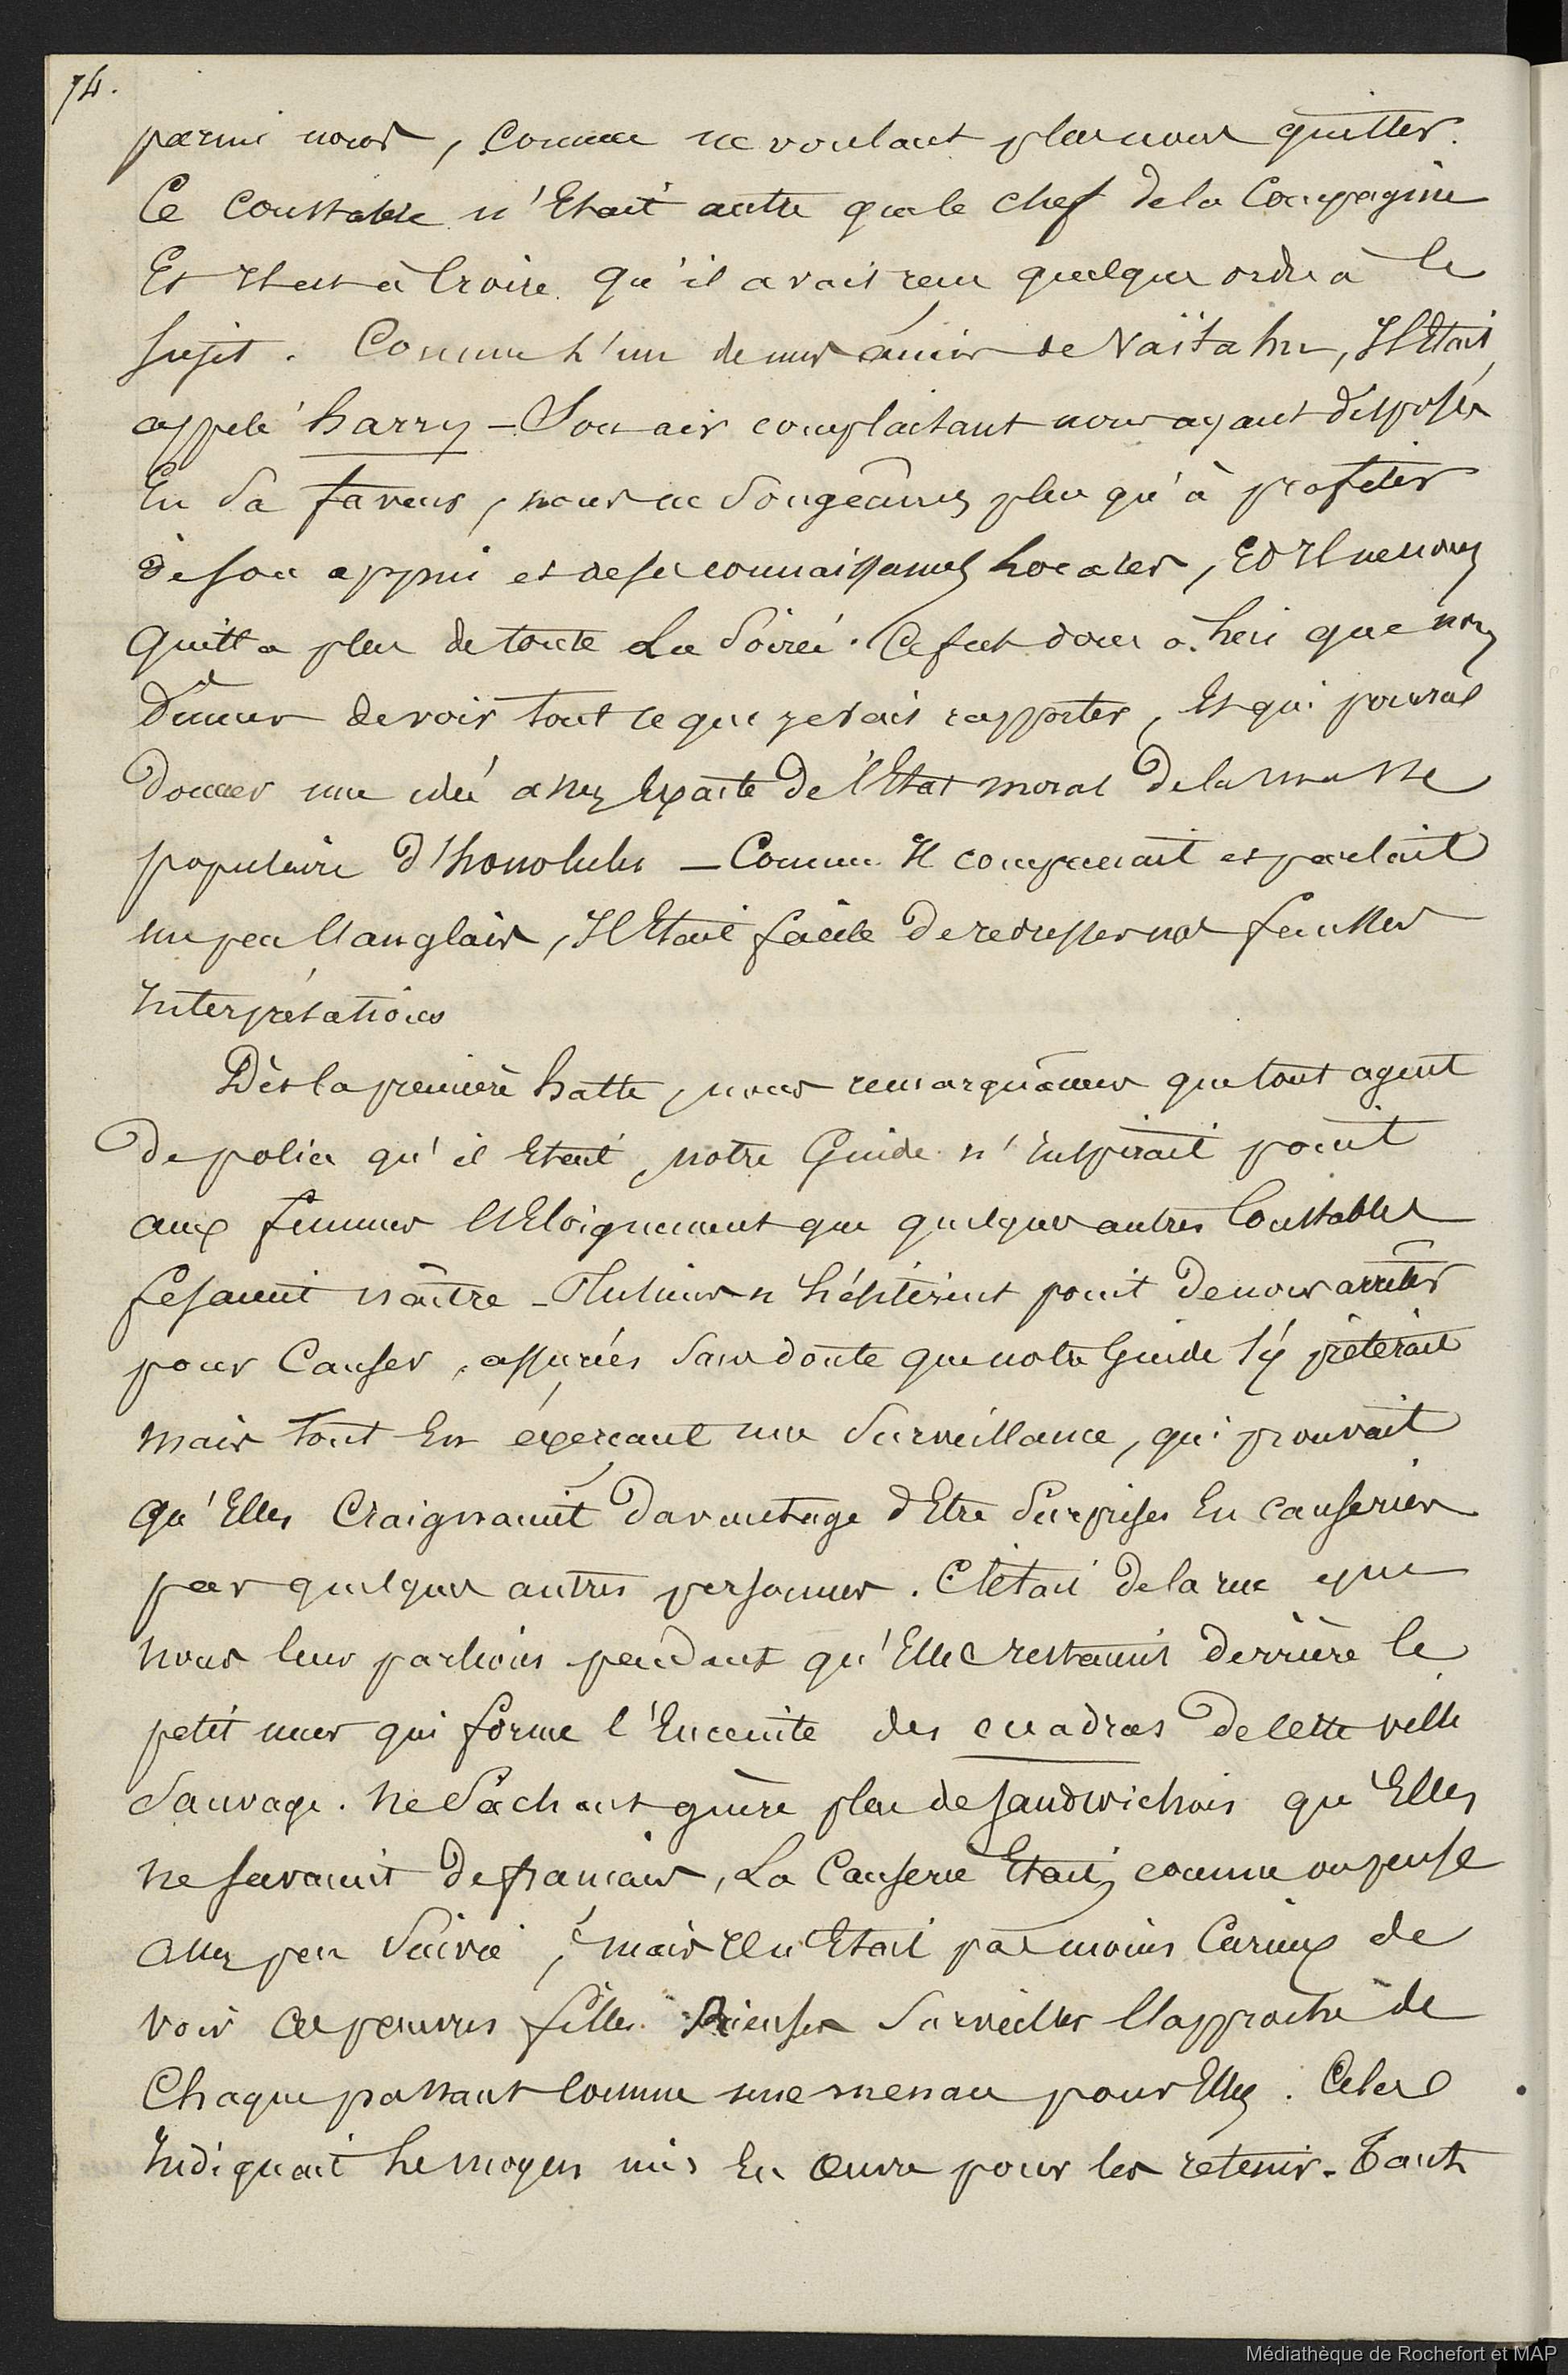 74.
parmi nous, Comme ne voulant plus nous quitter.
Ce Constable n'Etait autre que le chef de la Compagnie
Et Il est à Croire qu'il avait reçu quelque ordre à ce
Sujet. Comme l'un de nos amis de Vaïtahu, Il Etait
appelé harry – Son air complaisant nous ayant disposés
En Sa faveur, nous ne Songeâmes plus qu'à profiter
de son appui et de ses connaissances Locales, Et Il ne nous
quitta plus de toute La Soirée. Ce fut donc à Lui que nous
dûmes de voir tout ce que je vais rapporter, Et qui pourra
Donner une idée assez Exacte de l'Etat moral de la masse
populaire d'honolulu – Comme Il comprenait et parlait
un peu l'anglais, Il Etait facile de redresser nos fausses
Interprétations
Dès la première halte, nous remarquâmes que tout agent
De police qu'il Etait, notre Guide n'Inspirait point
aux femmes l'Eloignement que quelques autres Constables
fesaient naître – Plusieurs n'hésitèrent point de nous arrêter
pour Causer, assurées Sans doute que notre Guide s'y prêterait
mais tout En éxerçant une Surveillance, qui prouvait
qu'Elles Craignaient Davantage d'Etre Surprises En causeries
par quelques autres personnes. C'était de la rue que
nous leur parlions pendant qu'Elles restaient derrière le
petit mur qui forme l'Enceinte des cuadras De cette ville
Sauvage. Ne Sachant guère plus de Sandwichois qu'Elles
ne savaient De français, La Causerie Etait, comme on pense
assez peu Suivie; mais Il n'Etait pas moins Curieux de
voir ces pauvres filles Rieuses Surveiller l'approche de
Chaque passant Comme une menace pour Elles. Cela
Indiquait Le moyen mis En Œuvre pour les retenir – Tant
Médiathèque de Rochefort et MAP